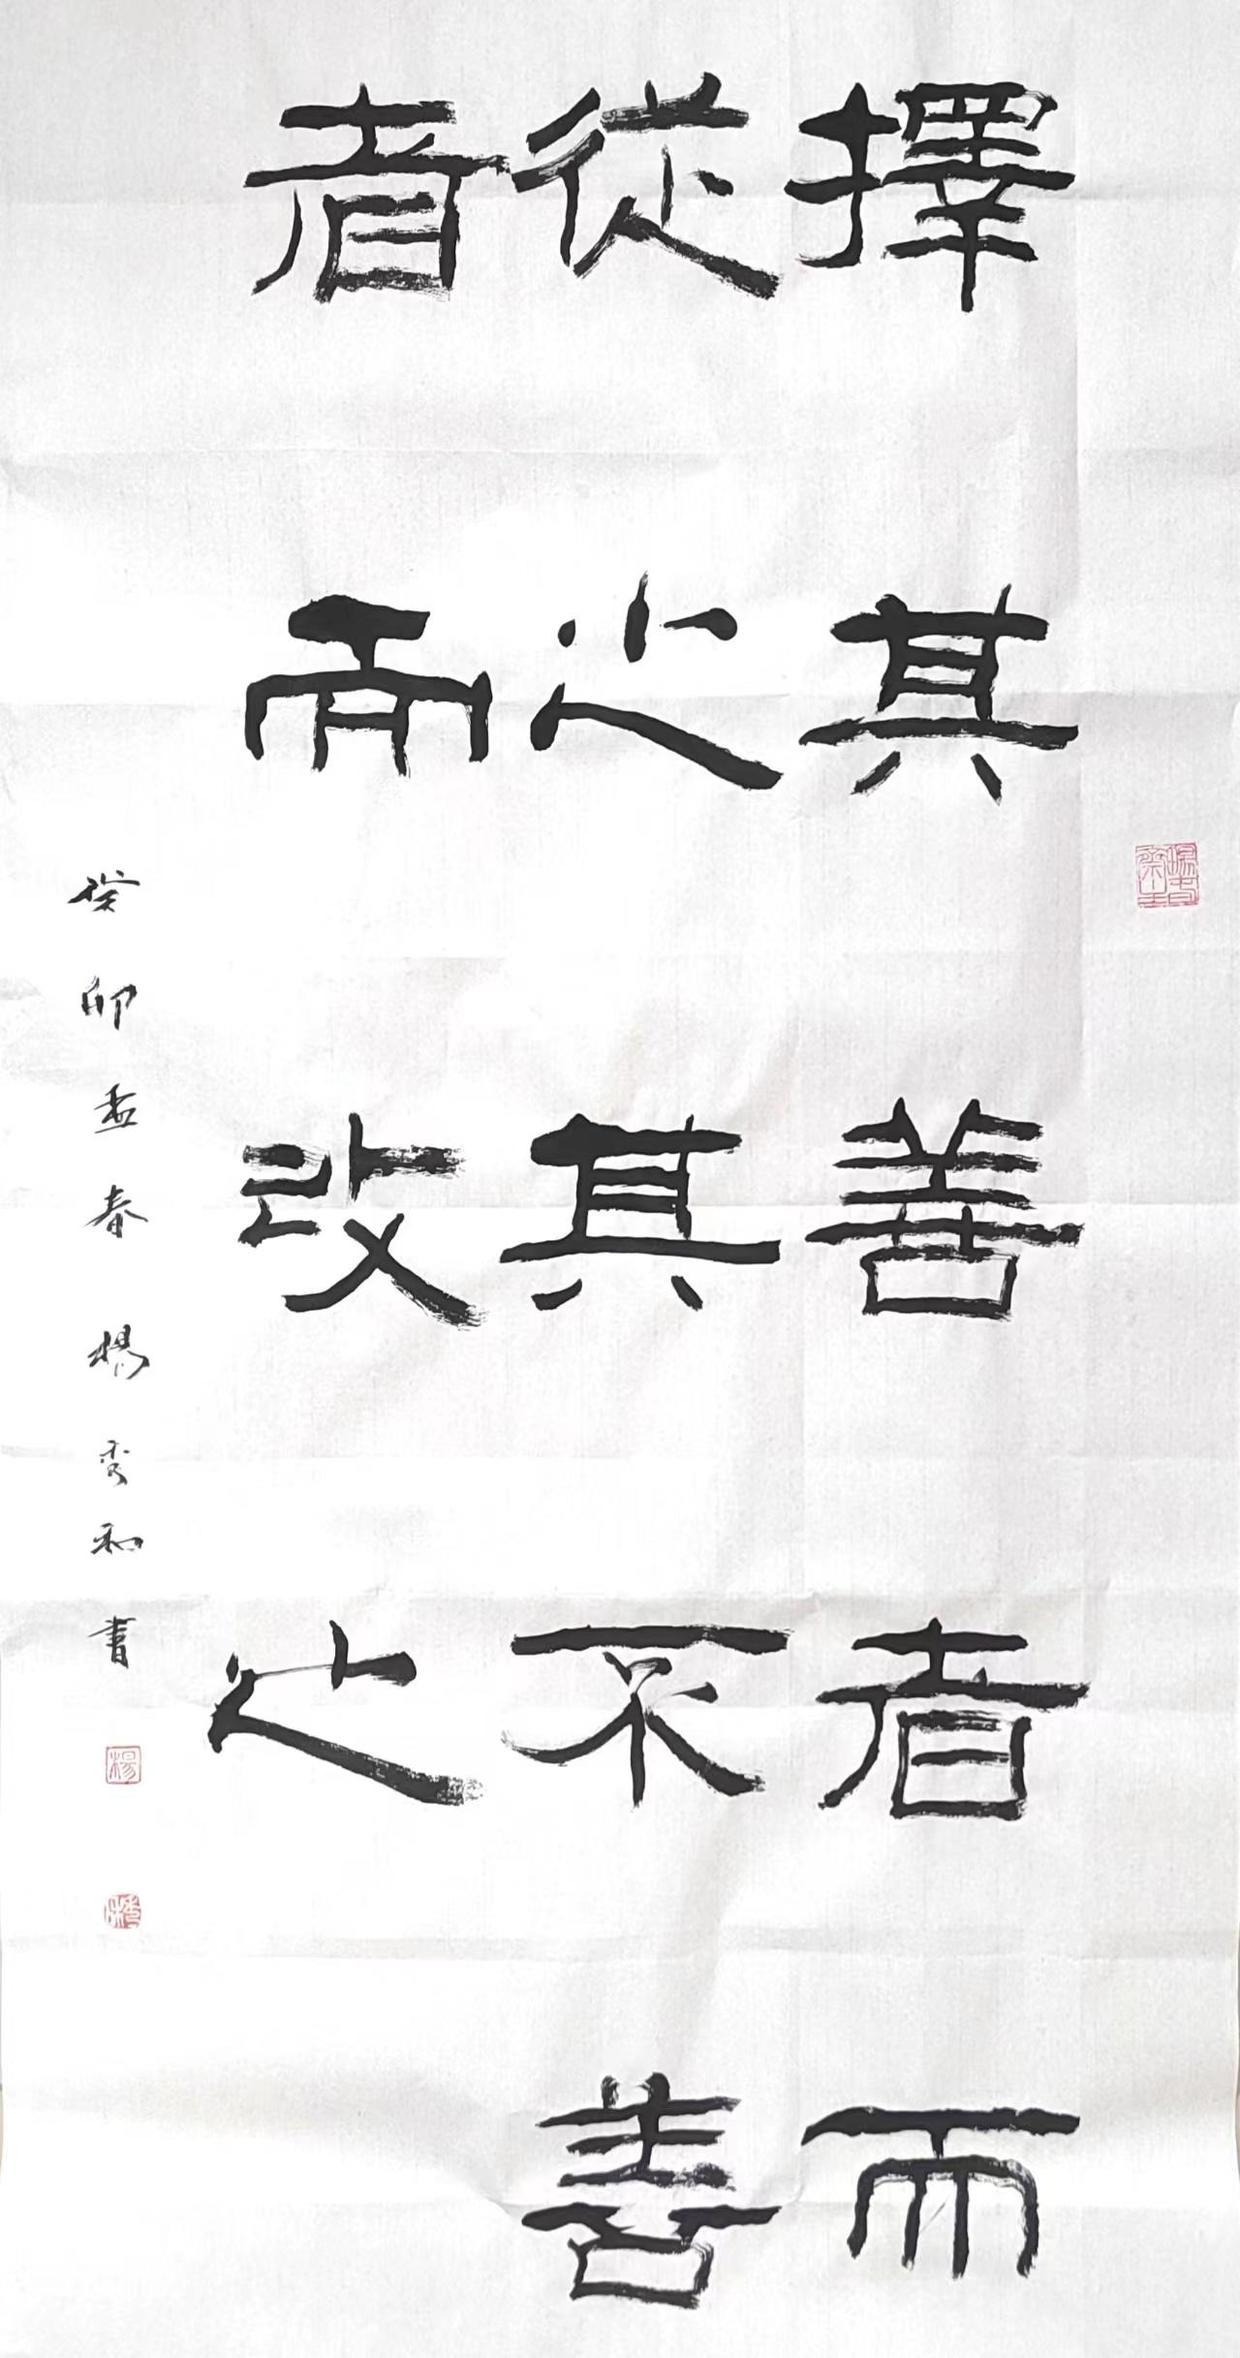 擇其善者而
從之其不善
者而改之
癸卯孟春楊秀和書
楊